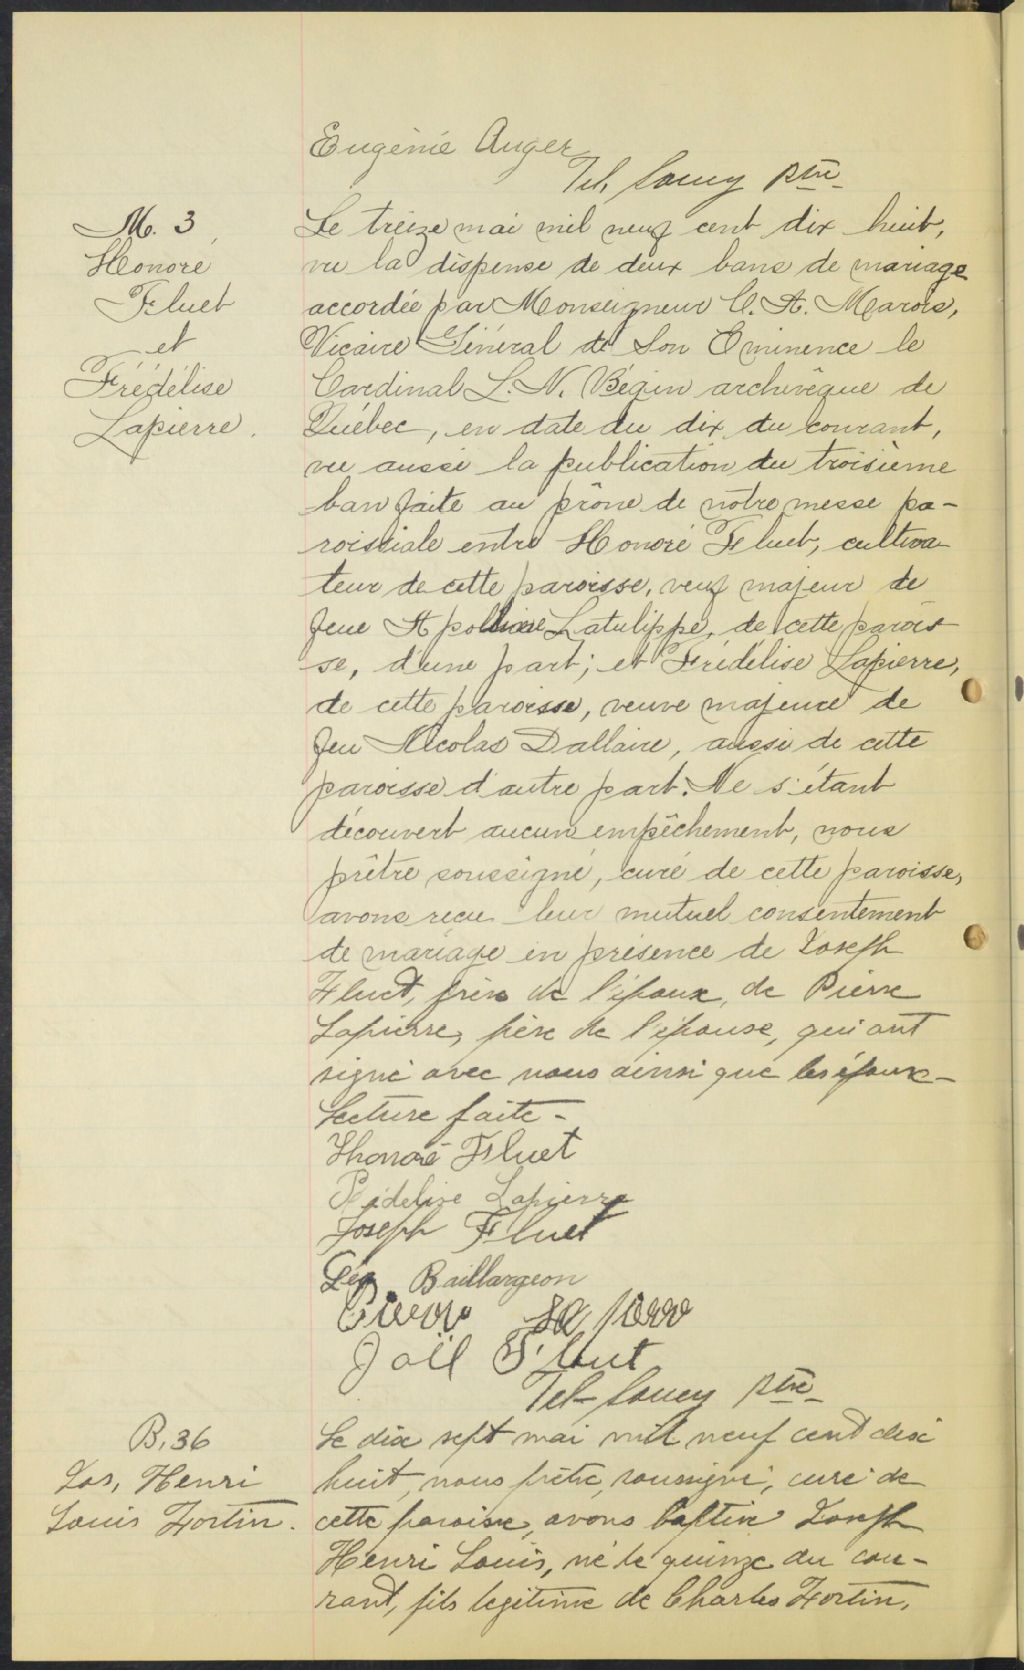 Eugénie Auger
Tel. Soucy ptre
M. 3
Honoré
Fluet
et
Frédélise
Lapierre.
Le treize mai mil neuf cent dix huit,
vu la dispense de deux bans de mariage
accordée par Monseigneur C. A. Marois,
Vicaire Général de Son Eminence le
Cardinal L. N. Bégin archevêque de
Québec, en date du dix du courant,
vu aussi la publication du troisième
ban faite au prône de notre messe pa-
roissiale entre Honoré Fluet, cultiva
teur de cette paroisse, veuf majeur de
feue Apolline Latulippe, de cette parois
se, d'une part; et Frédélise Lapierre,
de cette paroisse, veuve majeure de
feu Nicolas Dallaire, aussi de cette
paroisse d'autre part. Ne s'étant
découvert aucun empêchement, nous
prêtre soussigné, curé de cette paroisse,
avons reçu leur mutuel consentement
de mariage en présence de Joseph
Fluet, frère de l'époux, de Pierre
Lapierre, père de l'épouse, qui ont
signé avec nous ainsi que les époux-
Lecture faite-
Honoré Fluet
Fédelise Lapierre
Joseph Fluet
Géo. Baillargeon
Pierre La pierre
Joël Fluet
Tel- Soucy ptre
B. 36
Jos. Henri
Louis Fortin.
Le dix sept mai mil neuf cent dix
huit, nous prêtre, soussigné, curé de
cette paroisse, avons baptisé Joseph
Henri Louis, né le quinze du cou-
rant, fils légitime de Charles Fortin,